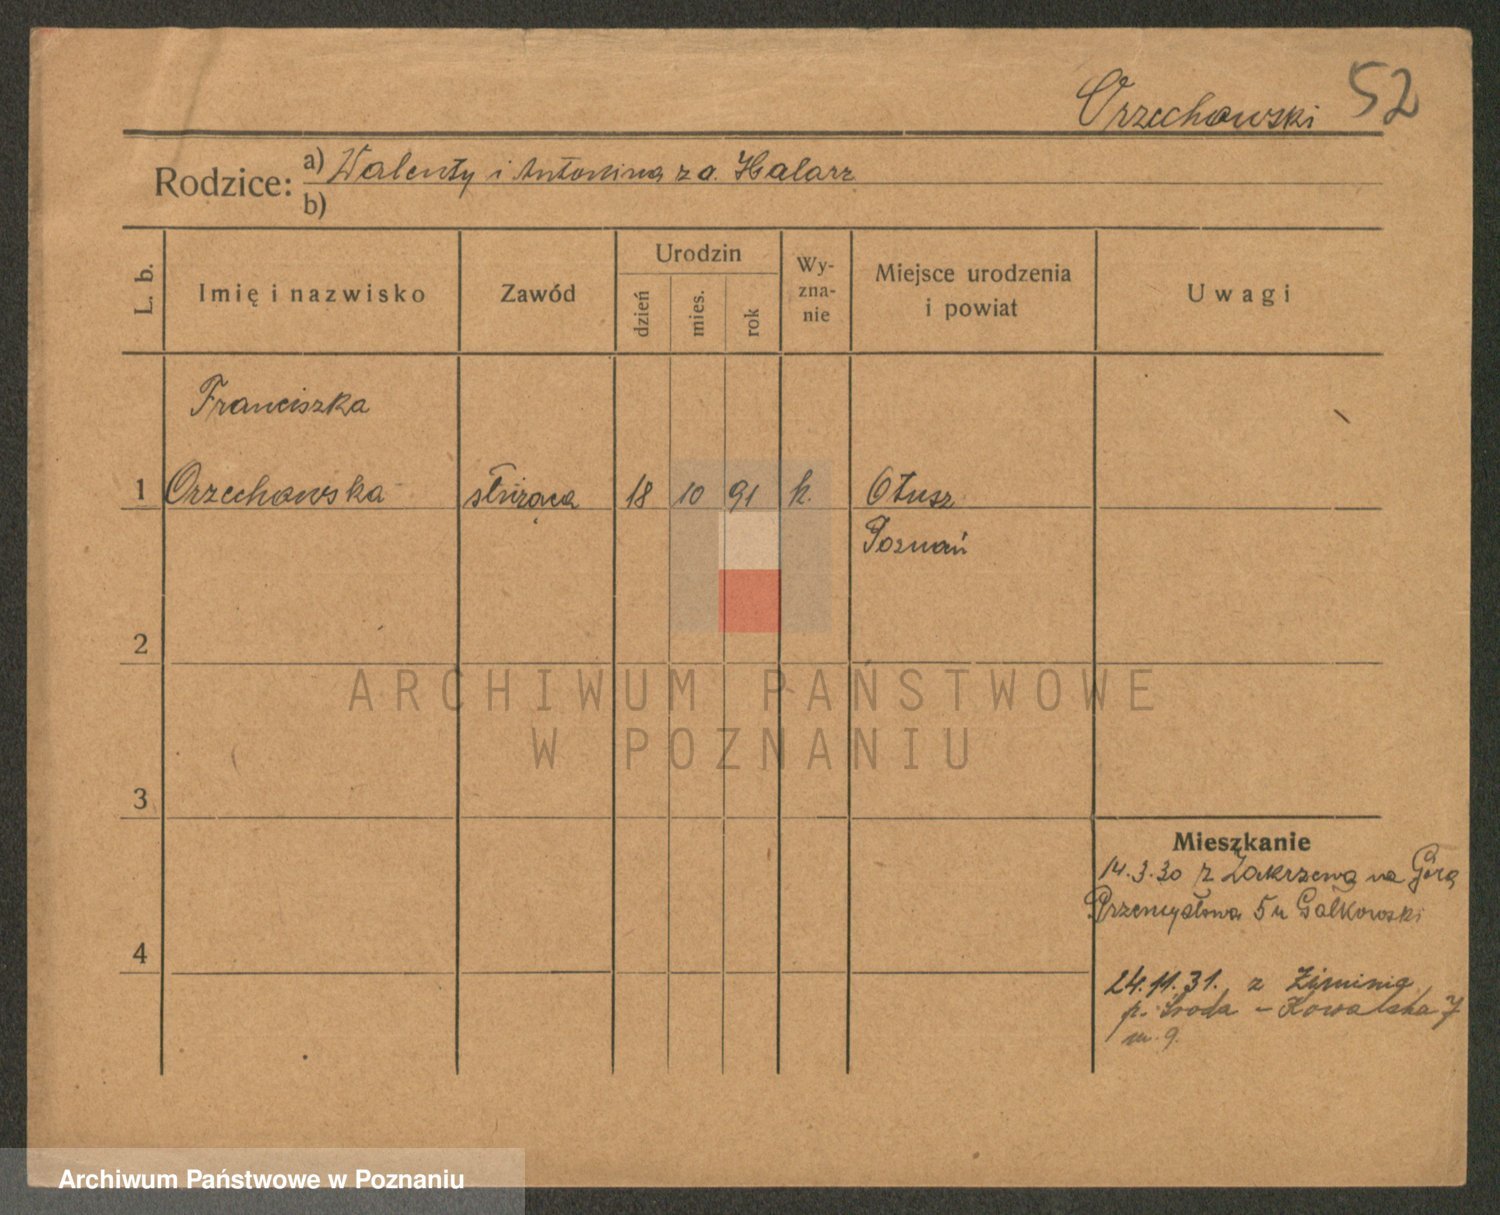 Orzechowski 52
Rodzice: a) Walenty i Antonina z d. Halarz
b)
L. b.
Imię i nazwisko
Zawód
Urodzin
dzień
mies.
rok
Wy-
zna-
nie
Miejsce urodzenia
i powiat
Uwagi
Franciszka
1 Orzechowska służąca 18 10 91 k. Otusz
Poznań
2
ARCHIWUM PAŃSTWOWE
W POZNANIU
3
Mieszkanie
14.3.30 z Zakrzewa na Górą
Przemysłowa 5 u Gałkowski
4
24.11.31. z
p. Środa - Kowalska 7
m. 9.
Archiwum Państwowe w Poznaniu